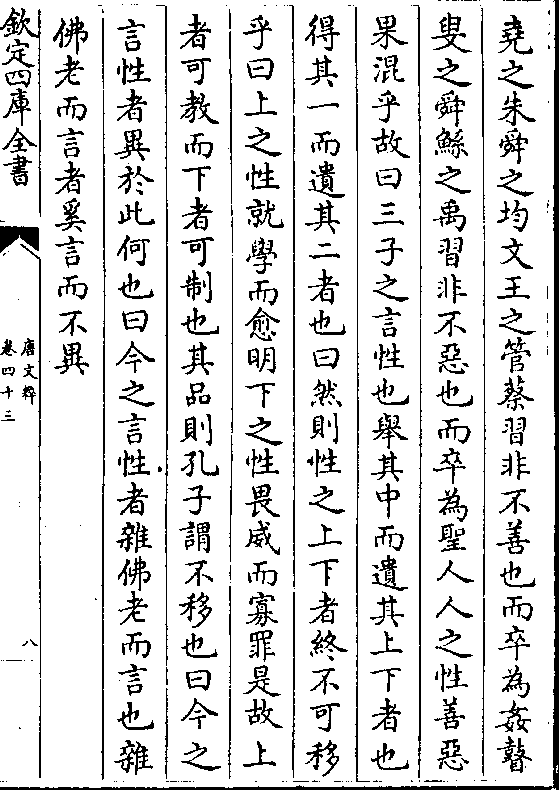 堯之朱舜之均文王之管蔡習非不善也而卒為姦瞽
叟之舜鯀之禹習非不惡也而卒為聖人人之性善惡
果混乎故曰三子之言性也舉其中而遺其上下者也
得其一而遺其二者也曰然則性之上下者終不可移
乎曰上之性就學而愈明下之性畏威而寡罪是故上
者可教而下者可制也其品則孔子謂不移也曰今之
言性者異於此何也曰今之言性者雜佛老而言也雜
佛老而言者奚言而不異
欽定四庫全書
唐文粹
卷四十三
八